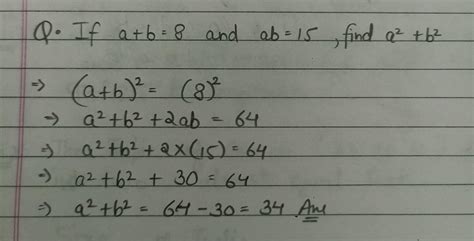 Q. If a+b=8 and ab=15, find a²+b²
⇒ (a+b)² = (8)²
→ a²+b²+2ab = 64
⇒ a²+b²+2×(15)=64
⇒ a²+b² + 30 = 64
⇒ a²+b² = 64-30 = 34 Ans